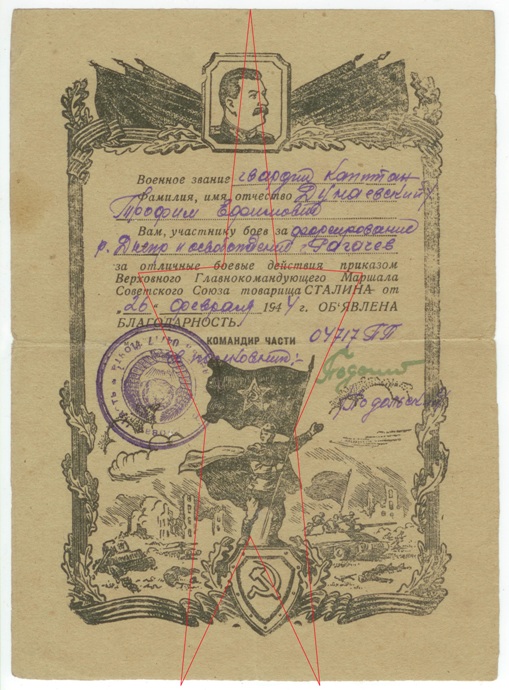 Военное звание гвардии Капитан
Фамилия, имя, отчество Дунаевский
Трофим Ефимович
Вам, участнику боев за форсирование
р. Днепр и освобождение г. Рагачев
за отличные боевые действия приказом
Верховного Главнокомандующего Маршала
Советского Союза товарища СТАЛИНА от
"26" февраля 1944 г. ОБ'ЯВЛЕНА
БЛАГОДАРНОСТЬ
КОМАНДИР ЧАСТИ 04717 ПП
полковник:-
Подольский